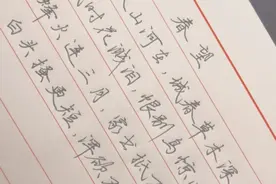 春望
山河在，城春草木深
时花溅泪，恨别鸟惊
烽火连三月，家书抵
白头搔更短，浑欲